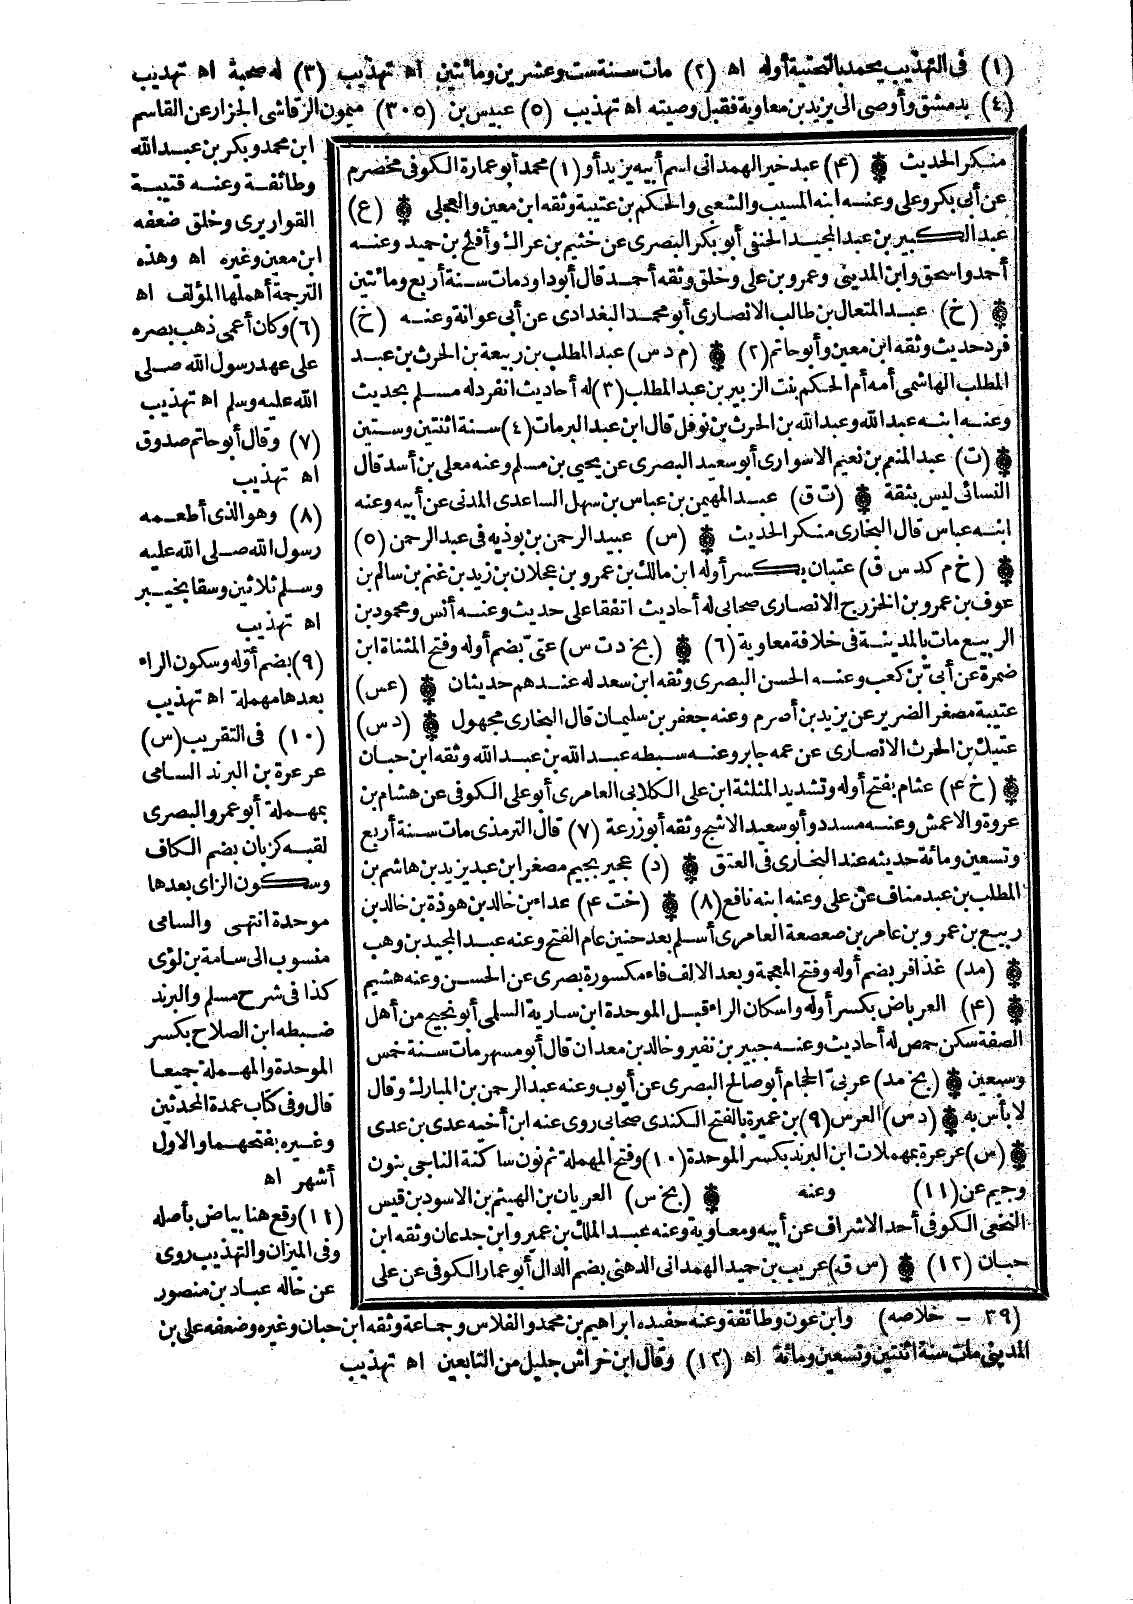 (١) فى التهذيب يحمد بالتحتية أوله اه (٢) مات سنة ست وعشرين ومائتين اه تهذيب (٣) له صحبة اه تهذيب
(٤) بدمشق وأوصى الى يزيد بن معاوية فقبل وصيته اه تهذيب (٥) عبيس بن (٣٠٥) ميمون الرقاشى الخزاز عن القاسم
ابن محمد وبكر بن عبد الله
وطائفة وعنه قتيبة
القواريرى وخلق ضعفه
ابن معين وغيره اه وهذه
الترجمة أهملها المؤلف اه
(٦) وكان أعمى ذهب بصره
على عهد رسول الله صلى
الله عليه وسلم اه تهذيب
(٧) وقال أبو حاتم صدوق
اه تهذيب
(٨) وهو الذى أطعمه
رسول الله صلى الله عليه
وسلم ثلاثين وسقا بخيبر
اه تهذيب
(٩) بضم أوله وسكون الراء
بعدها مهملة اه تهذيب
(١٠) فى التقريب (س)
عرعرة بن البرند السامى
بمهملة أبو عمرو البصرى
لقبه كزبان بضم الكاف
وسكون الزاى بعدها
موحدة انتهى والسامى
منسوب الى سامة بن لؤى
كذا فى شرح مسلم والبرند
ضبطه ابن الصلاح بكسر
الموحدة والمهملة جميعا
قال وفى كتاب عمدة المحدثين
وغيره بفتحهما والاول
أشهر اه
(١١) وقع هنا بياض بأصله
وفى الميزان والتهذيب روى
عن خاله عباد بن منصور
منكر الحديث (٤) عبد خير الهمدانى اسم أبيه يزيد أو (١) محمد أبو عمارة الكوفى مخضرم
عن أبى بكر وعلى وعنه ابنه المسيب والشعبى والحكم بن عتيبة وثقه ابن معين والعجلى (ع)
عبد الكبير بن عبد المجيد الحنفى أبو بكر البصرى عن خثيم بن عراك وأفلح بن حميد وعنه
أحمد واسحق وابن المدينى وعمرو بن على وخلق وثقه أحمد قال أبو داود مات سنة أربع ومائتين
(خ) عبد المتعال بن طالب الانصارى أبو محمد البغدادى عن أبى عوانة وعنه (خ)
فرد حديث وثقه ابن معين وأبو حاتم (٢) (م د س) عبد المطلب بن ربيعة بن الحرث بن عبد
المطلب الهاشمى أمه أم الحكم بنت الزبير بن عبد المطلب (٣) له أحاديث انفرد له مسلم بحديث
وعنه ابنه عبد الله وعبد الله بن الحرث بن نوفل قال ابن عبد البر مات (٤) سنة اثنتين وستين
(ت) عبد المنعم بن نعيم الاسوارى أبو سعيد البصرى عن يحيى بن مسلم وعنه معلى بن أسد قال
النسائى ليس بثقة (ت ق) عبد المهيمن بن عباس بن سهل الساعدى المدنى عن أبيه وعنه
ابنه عباس قال البخارى منكر الحديث (س) عبيد الرحمن بن بوذيه فى عبد الرحمن (٥)
(خ م كد س ق) عتبان بكسر أوله ابن مالك بن عمرو بن عجلان بن زيد بن غنم بن سالم بن
عوف بن عمرو بن الخزرج الانصارى صحابى له أحاديث اتفقا على حديث وعنه أنس ومحمود بن
الربيع مات بالمدينة فى خلافة معاوية (٦) (بخ د ت س) عتىّ بضم أوله وفتح المثناة ابن
ضمرة عن أبىّ بن كعب وعنه الحسن البصرى وثقه ابن سعد له عندهم حديثان (عس)
عتيبة مصغر الضرير عن يزيد بن أصرم وعنه جعفر بن سليمان قال البخارى مجهول (د س)
عتيك بن الحرث الانصارى عن عمه جابر وعنه سبطه عبد الله بن عبد الله وثقه ابن حبان
(خ ٤) عثام بفتح أوله وتشديد المثلثة ابن على الكلابى العامرى أبو على الكوفى عن هشام بن
عروة والاعمش وعنه مسدد وأبو سعيد الاشج وثقه أبو زرعة (٧) قال الترمذى مات سنة أربع
وتسعين ومائة حديثه عند البخارى فى العتق (د) عجير بجيم مصغر ابن عبد يزيد بن هاشم بن
المطلب بن عبد مناف عن على وعنه ابنه نافع (٨) (خت ٤) عداء بن خالد بن هوذة بن خالد بن
ربيع بن عمرو بن عامر بن صعصعة العامرى أسلم بعد حنين عام الفتح وعنه عبد المجيد بن وهب
(مد) غذافر بضم أوله وفتح المعجمة وبعد الالف فاء مكسورة بصرى عن الحسن وعنه هشيم
(٤) العرباض بكسر أوله واسكان الراء قبل الموحدة ابن سارية السلمى أبو نجيح من أهل
الصفة سكن حمص له أحاديث وعنه جبير بن نفير وخالد بن معدان قال أبو مسهر مات سنة خمس
وسبعين (بخ مد) عربىّ الحجام أبو صالح البصرى عن أيوب وعنه عبد الرحمن بن المبارك وقال
لا بأس به (د س) العرس (٩) بن عميرة بالفتح الكندى صحابى روى عنه ابن أخيه عدى بن عدى
(س) عرعرة بمهملات ابن البرند بكسر الموحدة (١٠) وفتح المهملة ثم نون ساكنة الناجى بنون
وجيم عن (١١) وعنه (بخ س) العريان بن الهيثم بن الاسود بن قيس
النخعى الكوفى أحد الاشراف عن أبيه ومعاوية وعنه عبد الملك بن عمير وابن جدعان وثقه ابن
حبان (١٢) (س ق) عريب بن حميد الهمدانى الدهنى بضم الدال أبو عمار الكوفى عن على
(٣٩ - خلاصه) وابن عون وطائفة وعنه حفيده ابراهيم بن محمد والفلاس وجماعة وثقه ابن حبان وغيره وضعفه على بن
المدينى مات سنة اثنتين وتسعين ومائة اه (١٢) وقال ابن خراش جليل من التابعين اه تهذيب